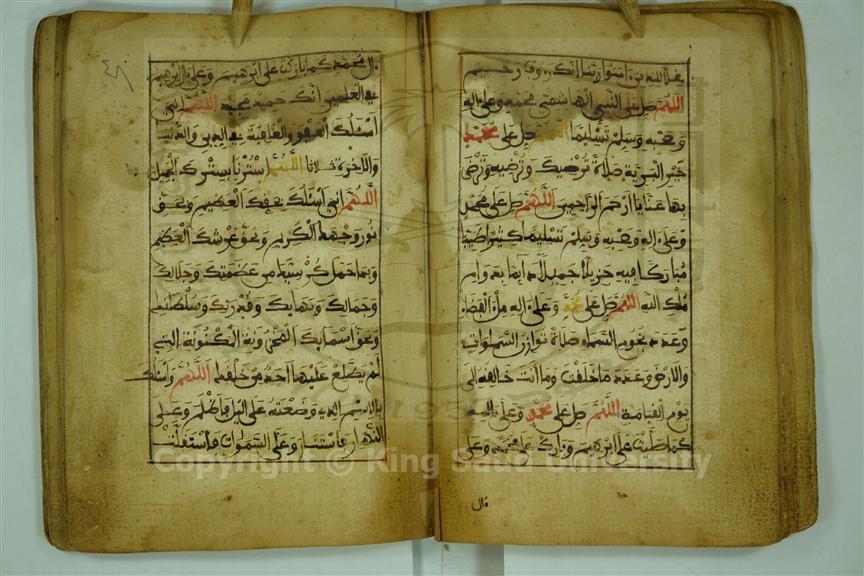 غلا للذين ءامنوا ربنا انك رءوف رحيم
اللهم صل على النبي الهاشمي محمد وعلى اله
وصحبه وسلم تسليما اللهم صل على محمد
خير البرية صلاة ترضيك وترضيه وترضى
بها عنا يا ارحم الراحمين اللهم صل على محمد
وعلى اله وصحبه وسلم تسليما كثيرا طيبا
مباركا فيه جزيلا جميلا دايما بدوام
ملك الله اللهم صل على محمد وعلى اله ملء الفضاء
وعدد نجوم السماء صلاة توازن السموات
والارض وعدد ما خلقت وما انت خالقه الى
يوم القيامة اللهم صل على محمد وعلى اله
كما صليت على ابرهيم وبارك على محمد وعلى
ءال
ءال محمد كما باركت على ابرهيم وعلى ءال ابرهيم
في العلمين انك حميد مجيد اللهم اني
اسئلك العفو والعافية في الدين والدنيا
والاخرة ثلاثا اللهم استرنا بسترك الجميل
اللهم اني اسئلك بحقك العظيم وبحق
نور وجهك الكريم وبحق عرشك العظيم
وبما حمل كرسيك من عظمتك وجلالك
وجمالك وبهايك وقدرتك وسلطانك
وبحق اسمايك المخزونة المكنونة التي
لم يطلع عليها احد من خلقك اللهم واسئلك
بالاسم الذي وضعته على اليل فاظلم وعلى
النهار فاستنار وعلى السموات فاستقلت
Copyright © King Saud University
195